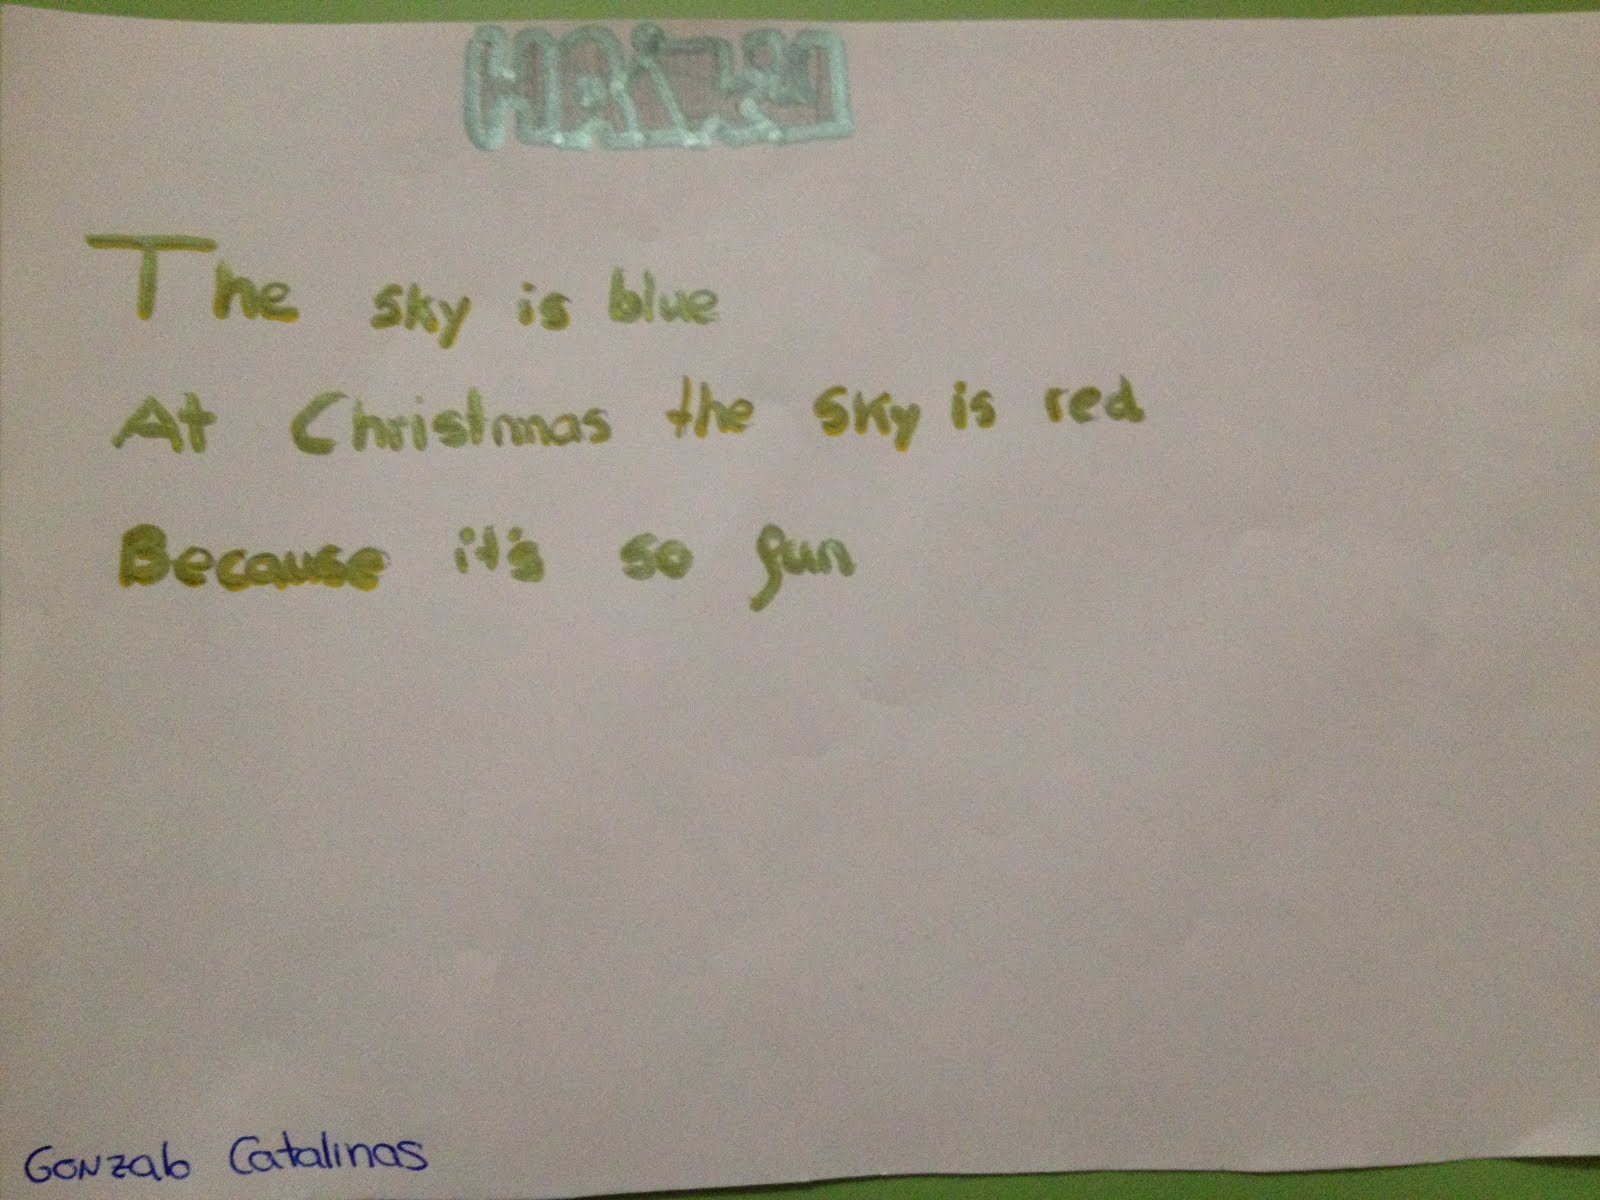 HAIKU
The sky is blue
At Christmas the sky is red
Because it's so fun
Gonzalo Catalinas